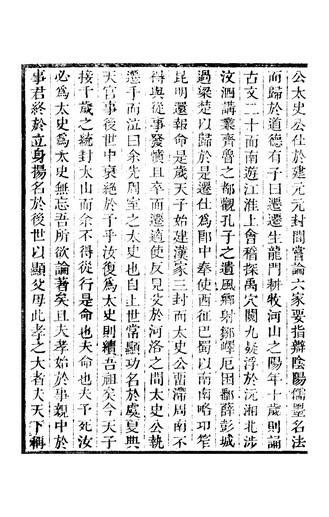 公太史公仕於建元元封間嘗論六家要指辯陰陽儒墨名法
而歸於道德有子曰遷遷生龍門耕牧河山之陽年十歲則誦
古文二十而南遊江淮上會稽探禹穴闚九疑浮於沅湘北涉
汶泗講業齊魯之都觀孔子之遺風鄉射鄒嶧戹困鄱薛彭城
過梁楚以歸於是遷仕為郎中奉使西征巴蜀以南南略卭笮
昆明還報命是歲天子始建漢家之封而太史公留滯周南不
得與從事發憤且卒而遷適使反見父於河洛之間太史公執
遷手而泣曰余先周室之太史也自上世常顯功名於虞夏典
天官事後世中衰絕於予乎汝復為太史則續吾祖矣今天子
接千歲之統封太山而余不得從行是命也夫命也夫予死汝
必為太史為太史無忘吾所欲論著矣且夫孝始於事親中於
事君終於立身揚名於後世以顯父母此孝之大者夫天下稱